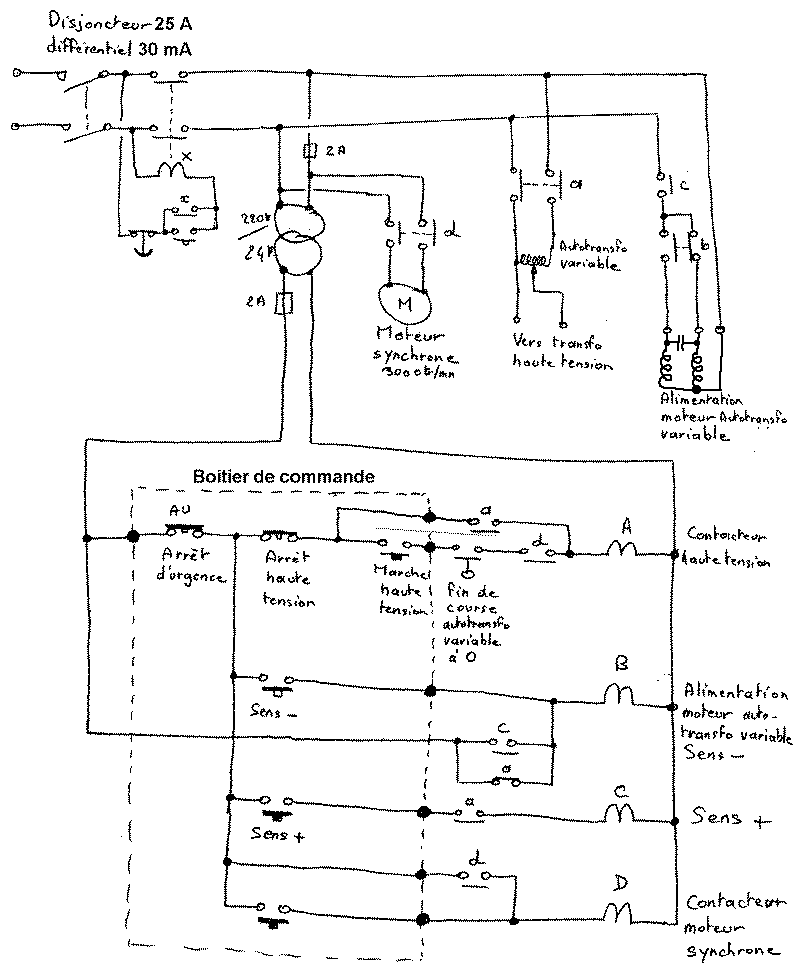 Disjoncteur 25 A
différentiel 30 mA
X
x
2A
220v
24v
2A
d
M
Moteur
synchrone
3000 tr/mn
a
Autotransfo
variable
Vers transfo
haute tension
c
b
Alimentation
moteur Autotransfo
variable
Boîtier de commande
AU
Arrêt
d'urgence
Arrêt
haute
tension
Marche
haute
tension
a
d
fin de
course
autotransfo
variable
à 0
A
Contacteur
haute tension
Sens -
B
Alimentation
moteur auto-
transfo variable
Sens -
C
a
Sens +
a
C
Sens +
d
D
Contacteur
moteur
synchrone